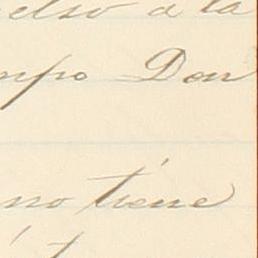 elso a la
mpo Don
no tiene